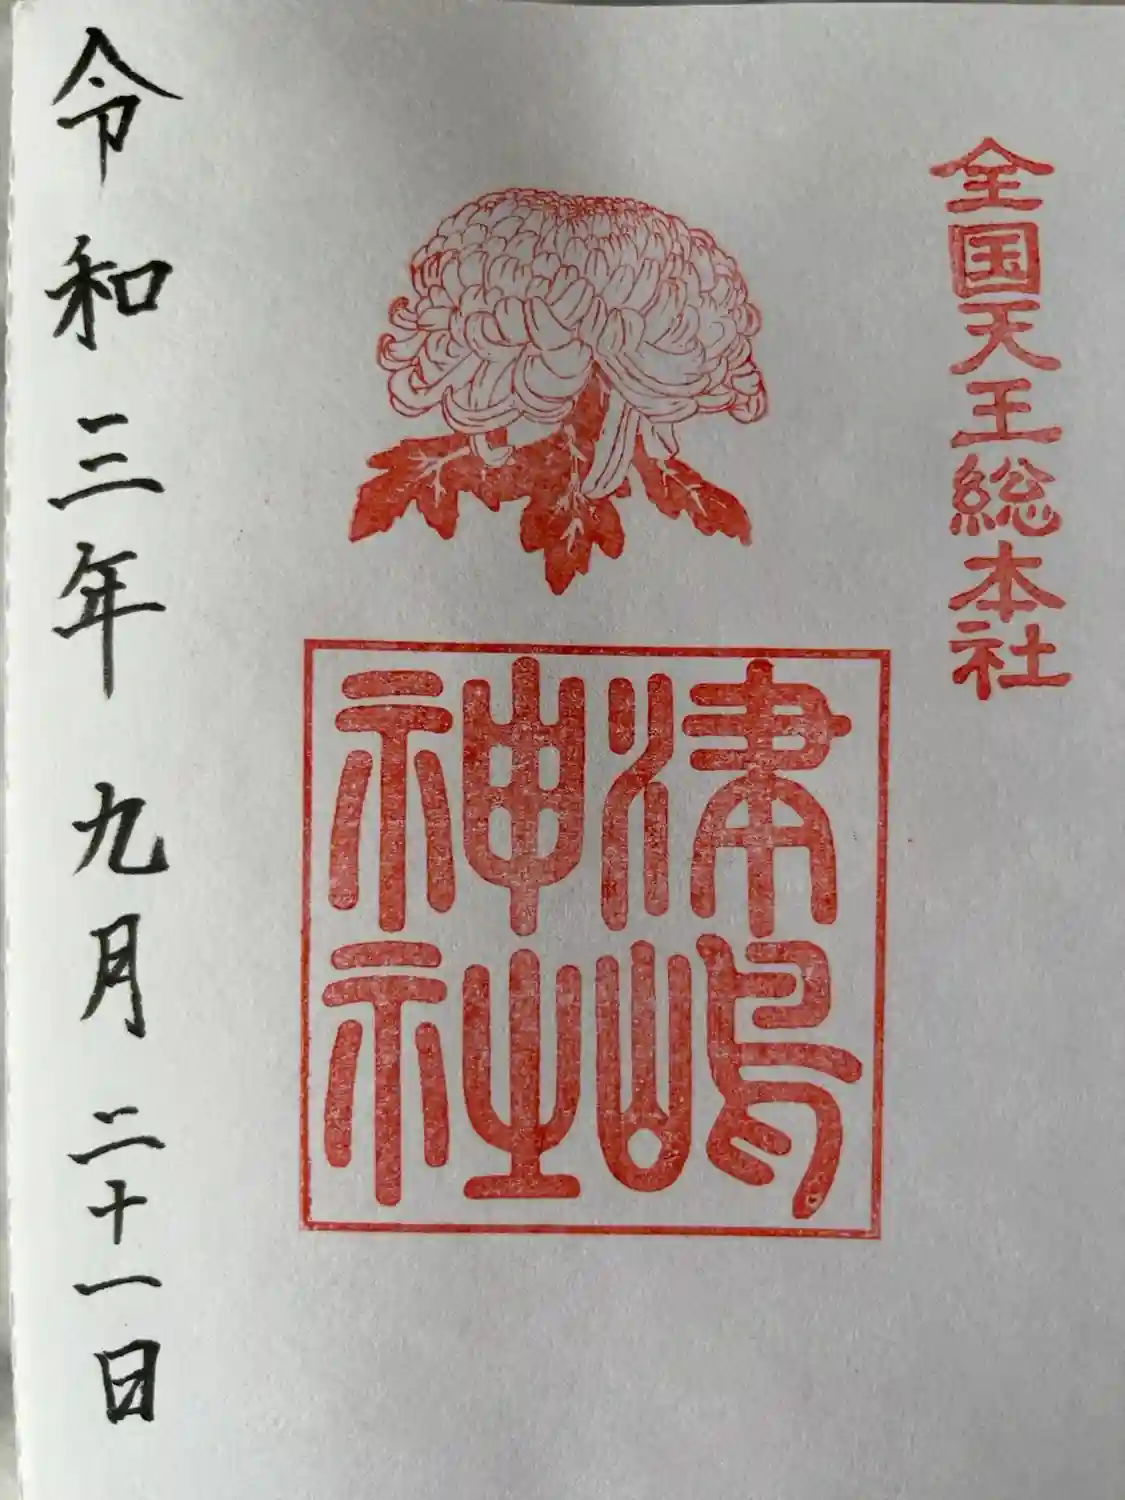 全国天王総本社
津嶋
神社
令和三年九月二十一日